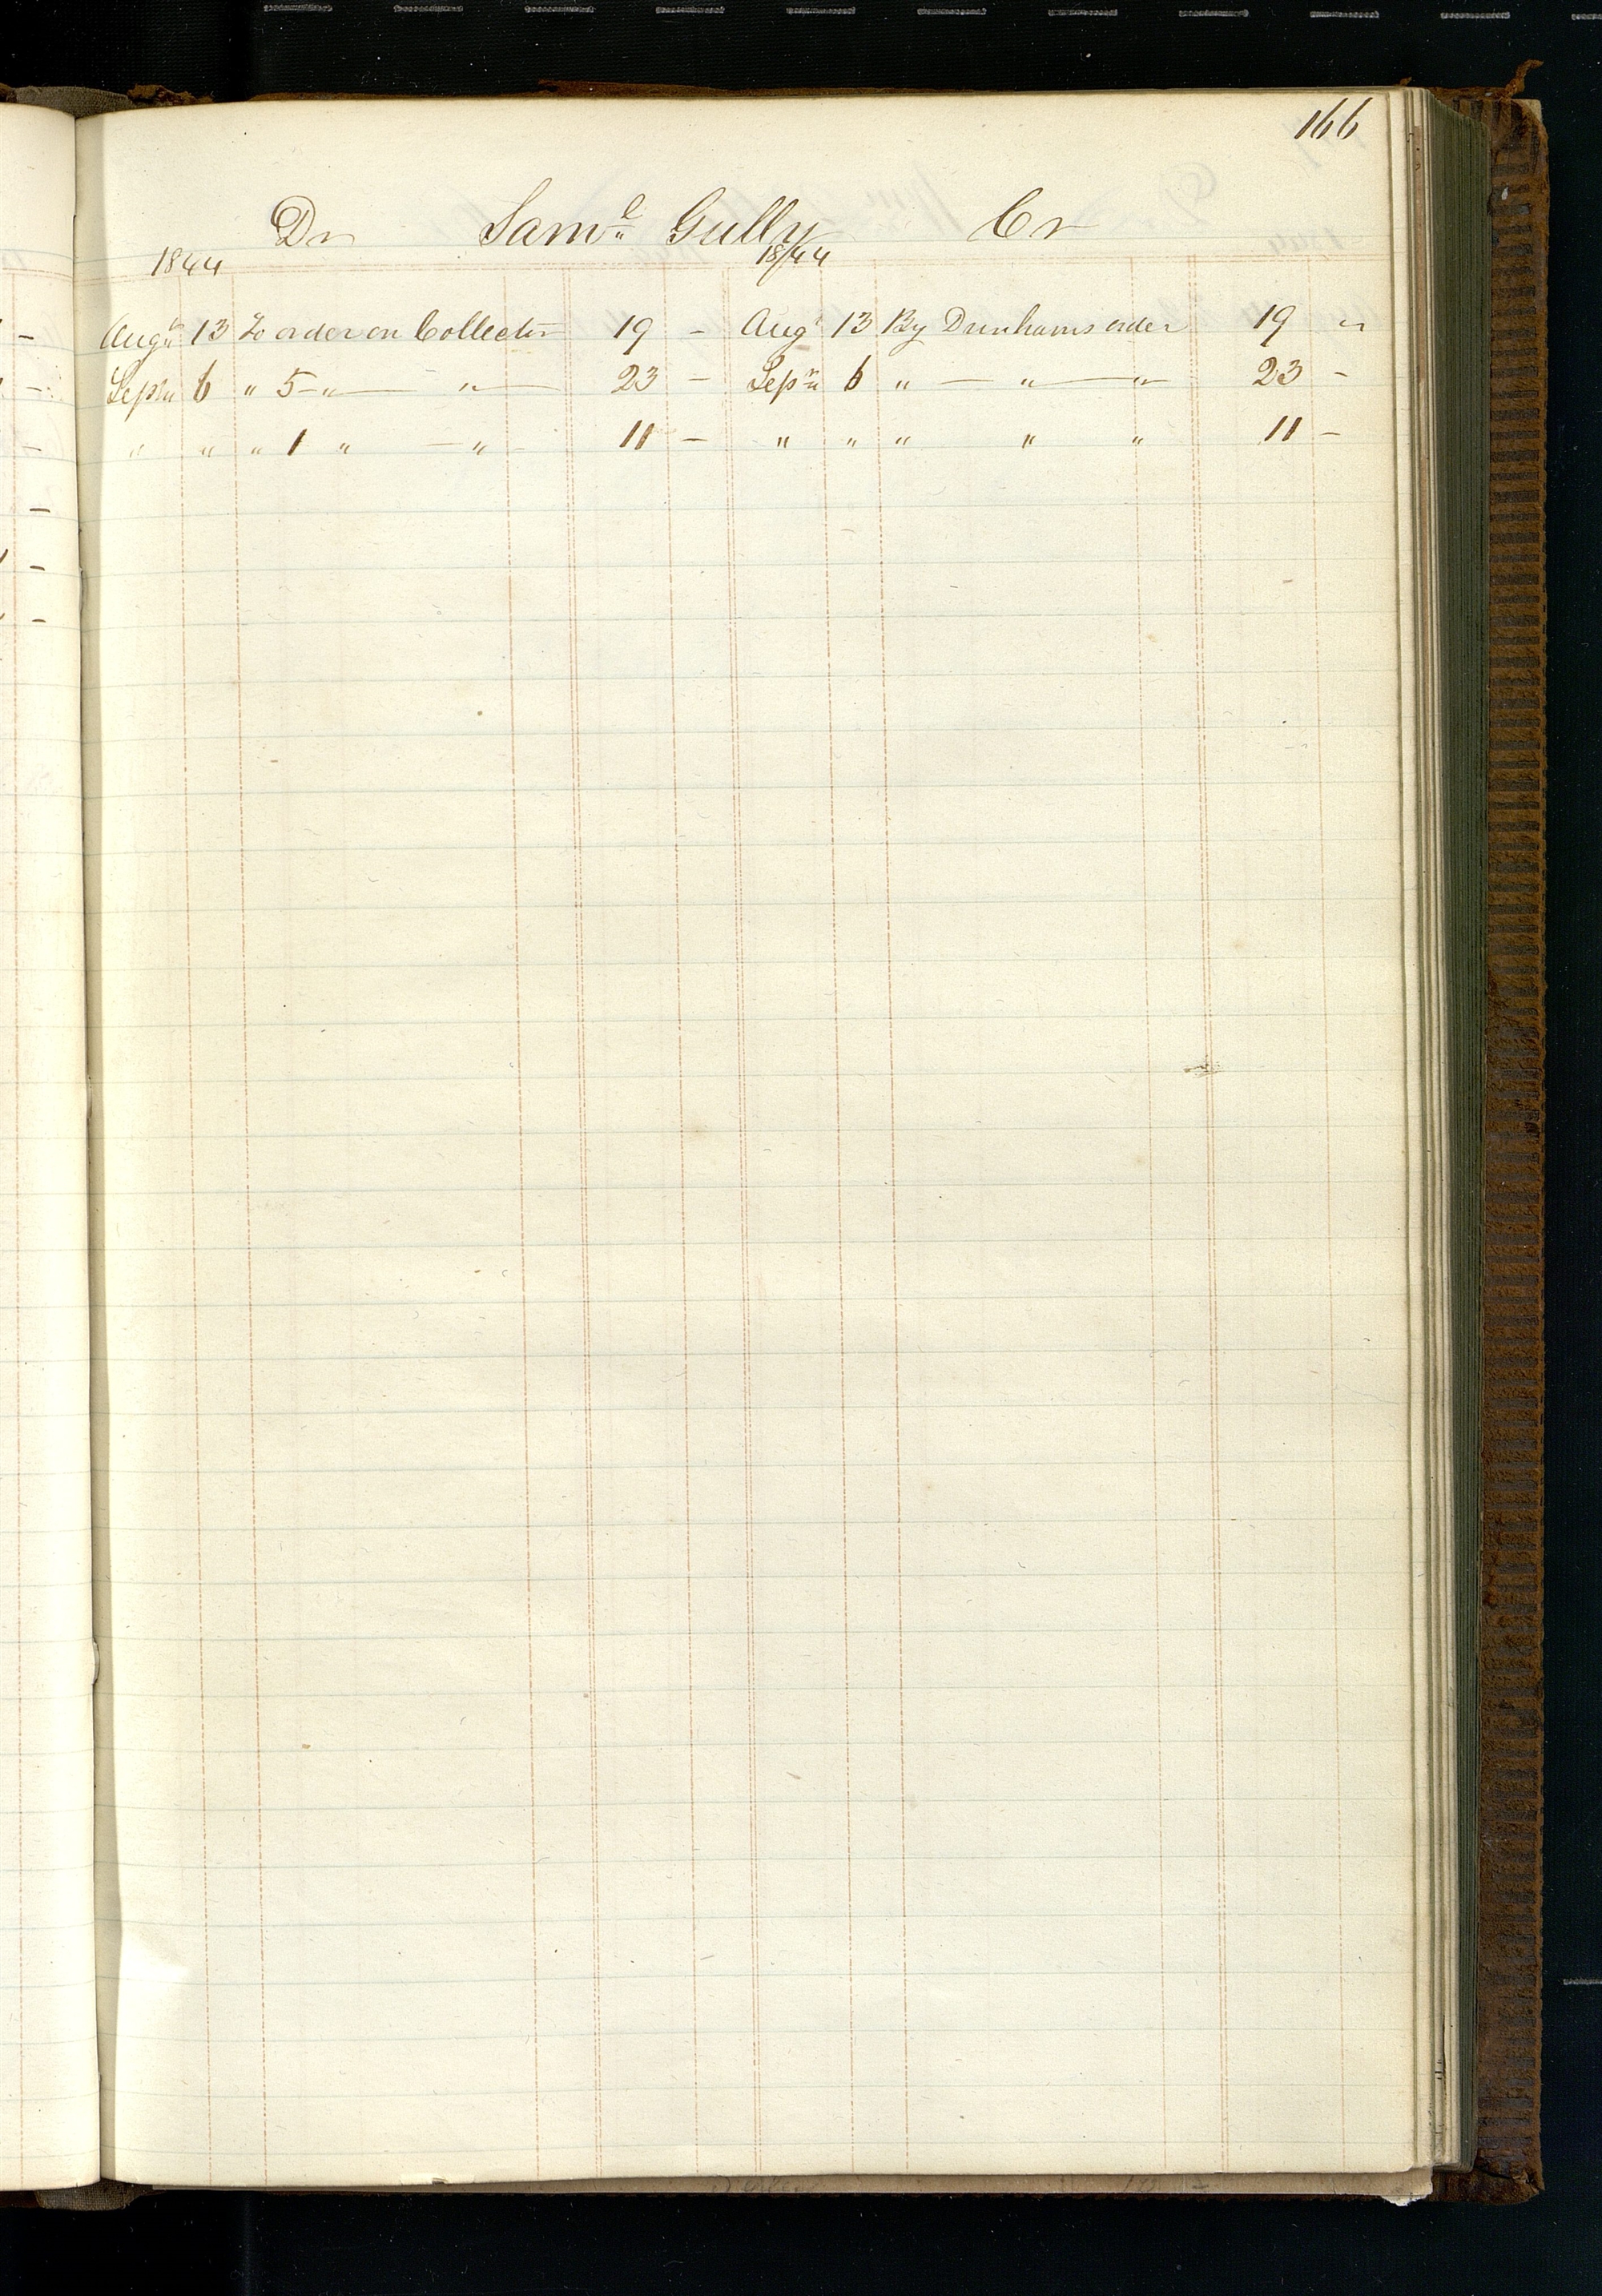 166
Dr Saml Gully Cr
1844 1844
Augt 13 To order on Collector 19 - Augt 13 By Dunhams order 19 "
Septr 6 " 5 " " 23 - Sepr 6 " " " 23 -
" " " 1 " " 11 - " " " " " 11 -